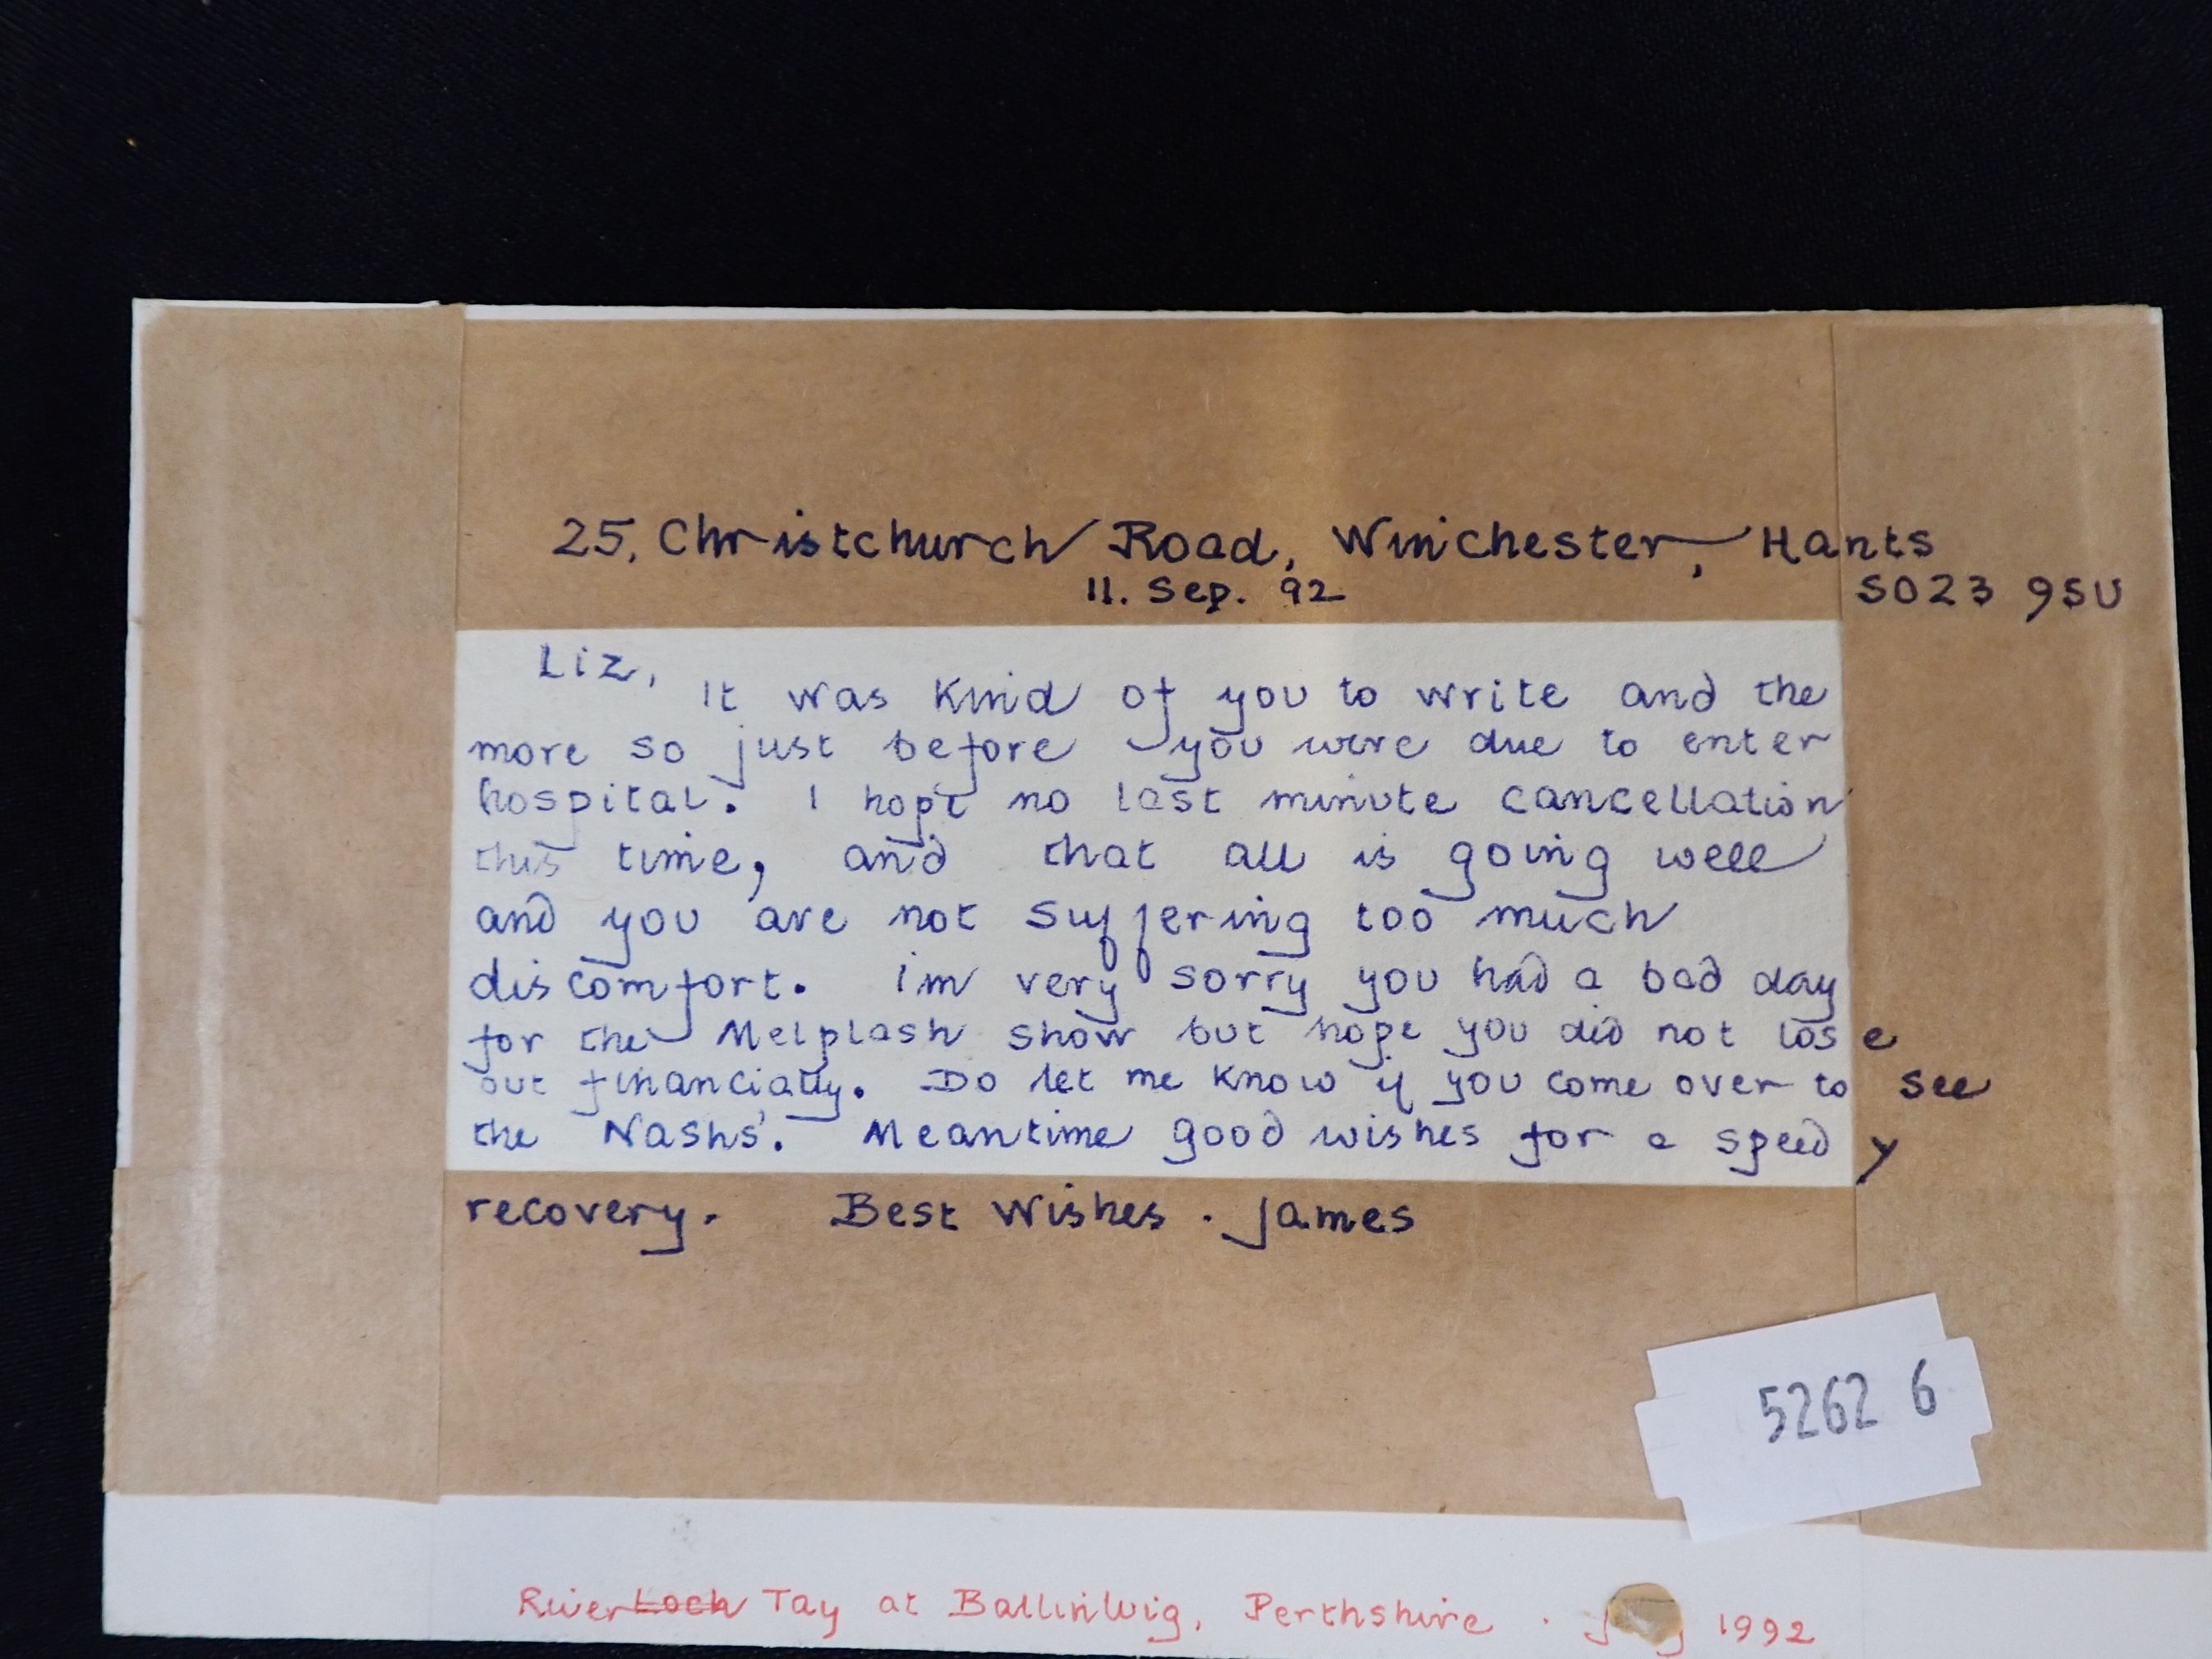 25, Christchurch Road, Winchester, Hants
11. Sep. 92 SO23 9SU
Liz,
It was kind of you to write and the
more so just before you were due to enter
hospital. I hope no last minute cancellation
this time, and that all is going well
and you are not suffering too much
discomfort. Im very sorry you had a bad day
for the Melplash show but hope you did not lose
out financially. Do let me know if you come over to see
the Nashs'. Meantime good wishes for a speedy
recovery. Best Wishes. James
5262 6
River Loch Tay at Ballinluig, Perthshire. 1992